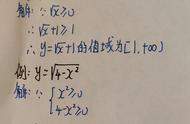 解:∵√x≥0
∴√x+1≥1
∴y=√x+1的值域为[1,+∞)
例:y=√4-x²
解:∵{x²≥0
4-x²≥0